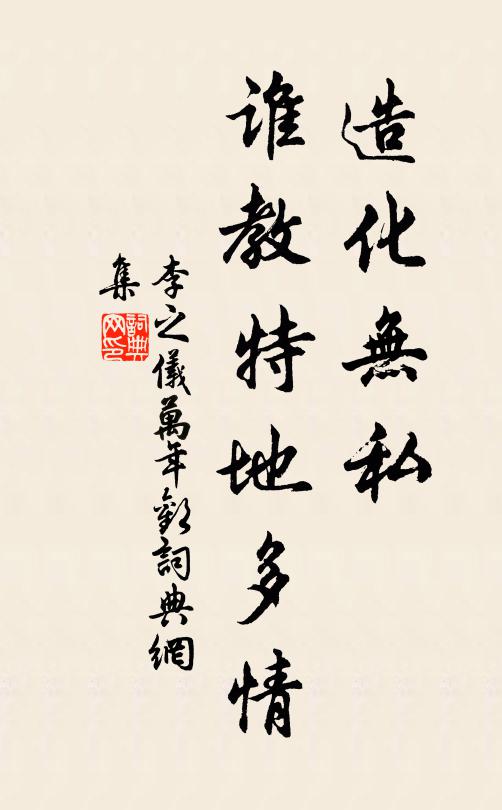 造化無私
谁教特地多情
李之儀萬年歡詞典網
集
詞典
网印